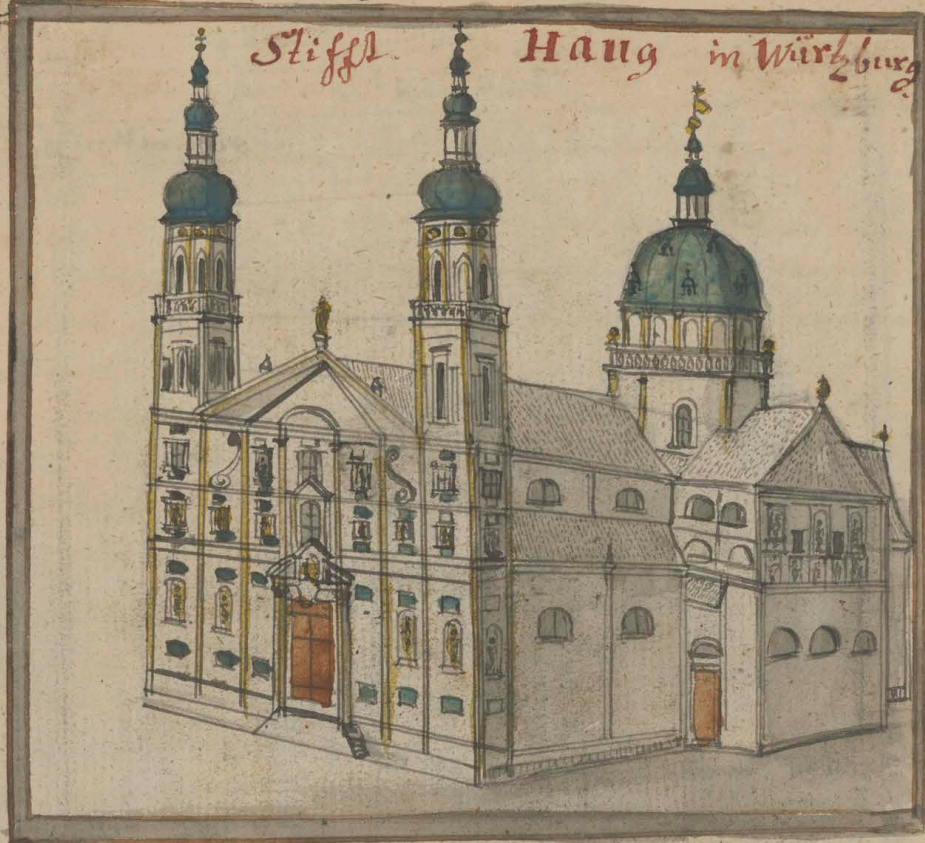 Stifft Haug in Würtzburg